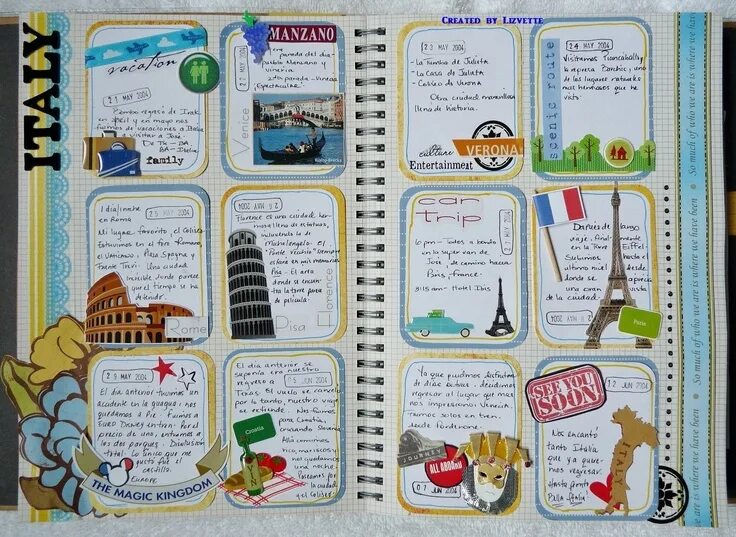 ITALY
Created by Lizvette
vacation
21 MAY 2004
Ramón regresó de Irak
en abril y en mayo nos
fuimos de vacaciones a Italia
a visitar a José.
family
MANZANO
2004
parada del día-
pueblo Manzano y
vinería
2nda parada - Venecia
¡Espectacular!
Venice
23 MAY 2004
- La Tumba de Julieta
- La Casa de Julieta
- Coliseo de Verona
Otra ciudad maravillosa
llena de historia.
culture
Entertainment
VERONA
scenic route
24 MAY 2004
Visitamos
la represa
de los lugares naturales
más hermosos que he
visto.
1 día/noche
en Roma
25 MAY 2004
Mi lugar favorito, el Coliseo
Estuvimos en el Foro Romano,
el Vaticano, Piaza Spagna y
Fuente Trevi. Una ciudad
increíble donde parece
que el tiempo se ha
detenido.
Rome
MAY 2004
Florence es una ciudad her-
mosa llena de esculturas,
incluyendo la de
Michelangelo. El
Ponte Vecchio siempre
estará en mis memorias
Pisa - El área
donde se encuen-
tra la torre parece
de película!
Pisa
Florence
car
trip
27 MAY 2004
6 pm - Todos a bordo
en la super van de
José, de camino hacia
París, France.
3:15 am - Hotel Ibis
Después de largo
viaje, finalmente
en la Torre Eiffel.
Subimos hasta el
último nivel desde
donde se aprecia
una gran vista
de la ciudad.
MAY 2004
Paris
29 MAY 2004
El día anterior tuvimos un
accidente en la guagua, nos
quedamos a pie. Fuimos a
Euro Disney en tren. Por el
precio de uno, entramos a
los dos parques. Disilusión
total. Lo único que me
gustó fue el
castillo.
EUROPE
THE MAGIC KINGDOM
El día anterior se
suponía era nuestro
regreso a
Texas. El vuelo se canceló
por lo tanto nuestro viaje
se extiende. Nos fuimos
para Croatia,
cruzando Slovenia
05 JUN 2004
Allá comimos
rico, mariscos y
nos quedamos
una noche.
Paseamos por
la ciudad
y el Coliseo.
Croatia
Ya que pudimos disfrutar
de días extras, decidimos
regresar al lugar que más
nos impresionó: Venecia.
Fuimos solos en tren,
desde Pordenone.
JOURNEY
ALL ABOARD
07 JUN 2004
SEE YOU
SOON
12 JUN 2004
Nos encantó
tanto Italia
que ya quere-
mos regresar.
Hasta pronto
Bella Italia!
ITALY
So much of who we are is where we have been
So much of who we are is where we have been